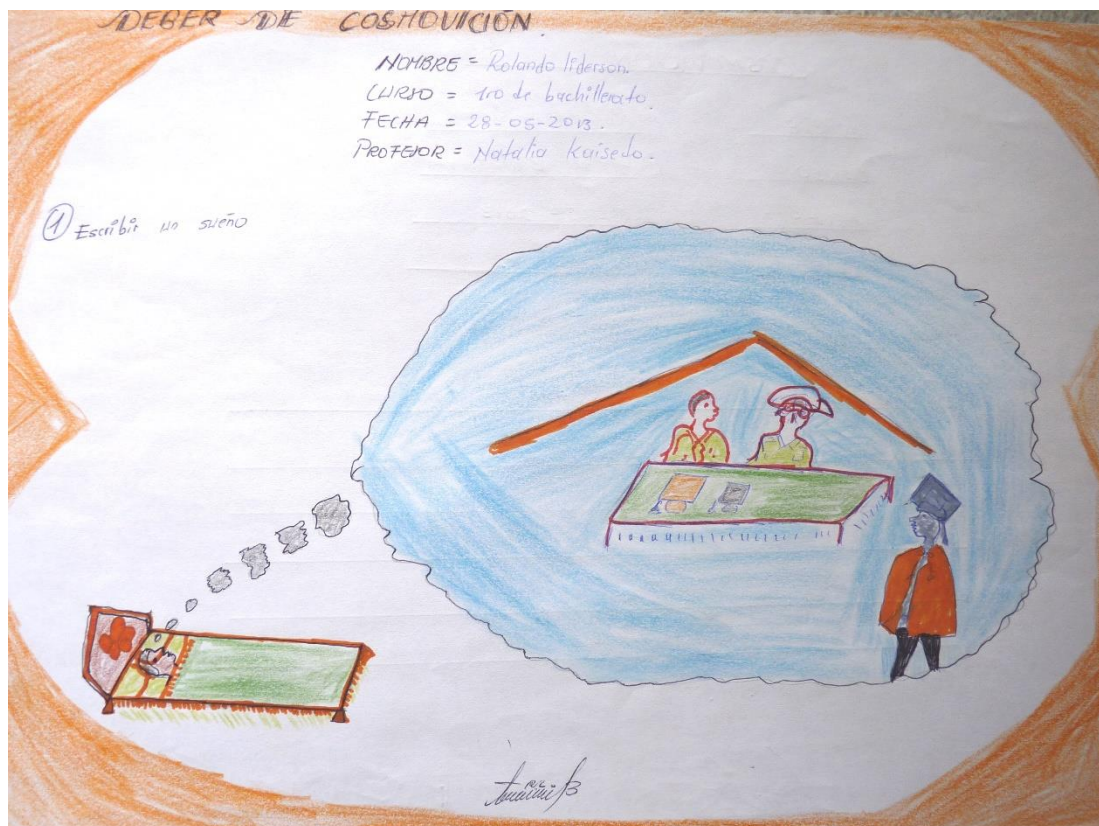 DEBER DE COSMOVICIÓN.
NOMBRE = Rolando liderson.
CURSO = 1ro de bachillerato.
FECHA = 28-05-2013.
PROFESOR = Natalia Kaisedo.
① Escribir un sueño